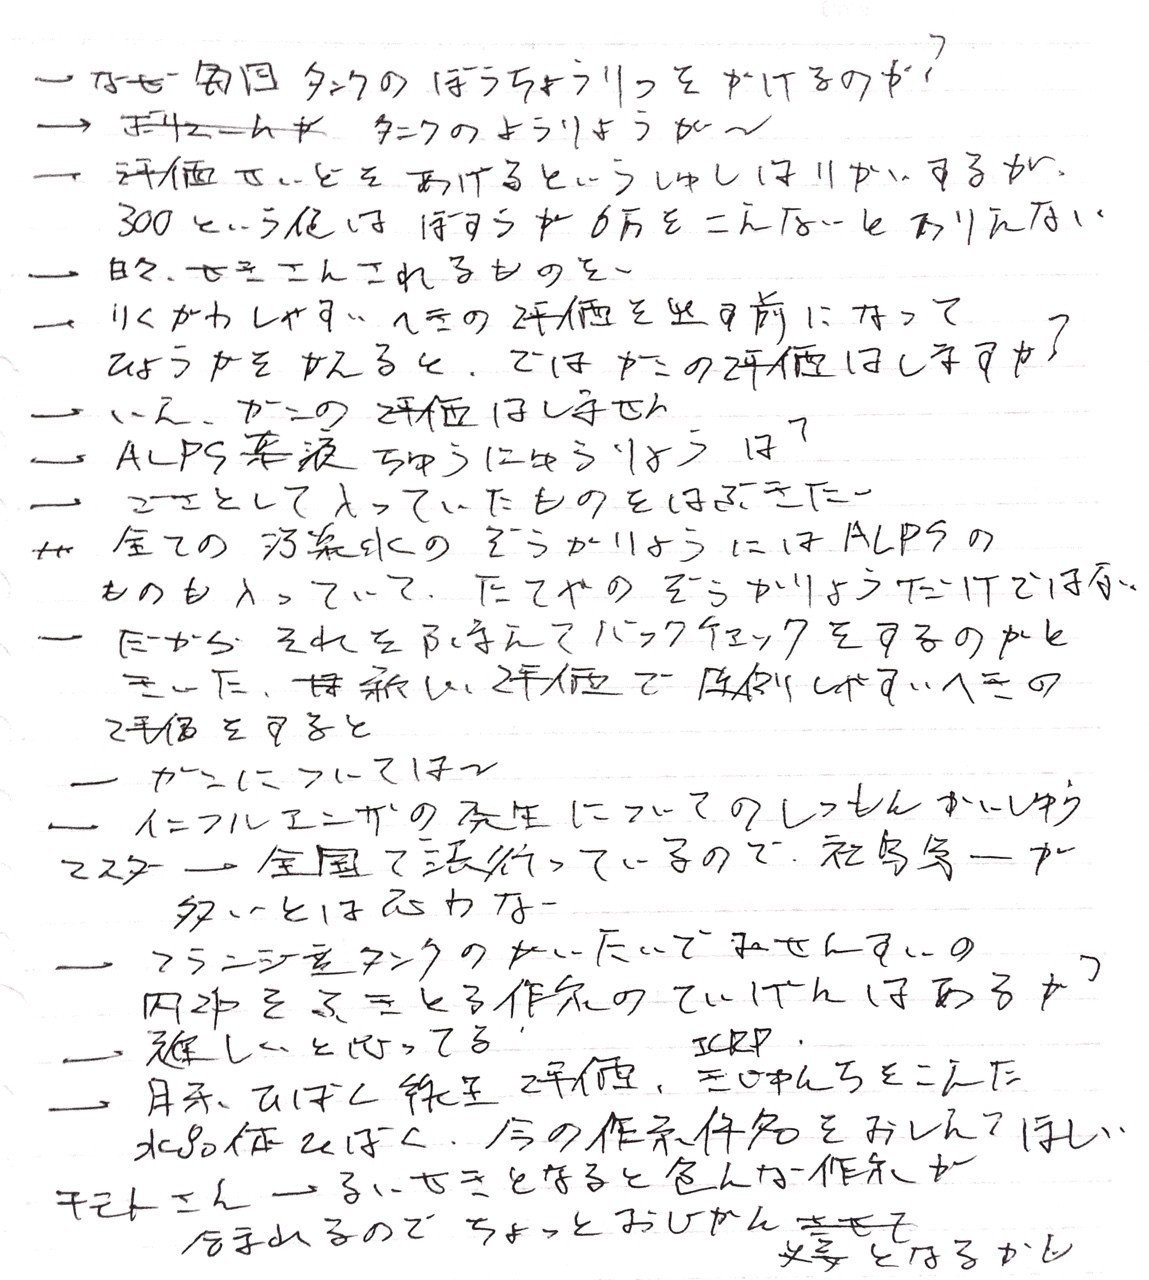 一 なぜ 毎回 タンクの ぼうちょうりつを かけるのか?
→ ボリュームが タンクのようりょうが〜
一 評価せいどを あげるというしゅしは りかいするが、
300という値は ぼすうが 6万をこえないと ありえない
一 日々、せきさんされるものを〜
一 りくがわしゃすいへきの 評価を出す前になって
ひょうかを かえると、では かこの評価はしますか?
一 いえ、かこの 評価はしません
一 ALPS薬液 ちゅうにゅうりょうは?
一 ごさとして入っていたものを はぶきたー
全ての 汚染水の ぞうかりょうには ALPSの
ものも入っていて、たてやの ぞうかりょうだけではない
一 だから それを ふまえて バックチェックをするのかと
きいた、新しい評価で 陸側しゃすいへきの
評価をすると
一 かこについては〜
一 インフルエンザの発生についてのしつもん
マスター → 全国で流行っているので、が
多いとは思わなー
一 フランジ型タンクの かいたいで ざんすいの
内部を ふきとる作業の ていげんはあるか?
一 難しいと思ってる
ICRP.
→ ひばく 評価、きじゅんちをこえた
ひばく、今の作業件名を おしえてほしい
モトさん → るいせきとなると 色んな作業が
含まれるので ちょっと おじかん させて
必要となるかと